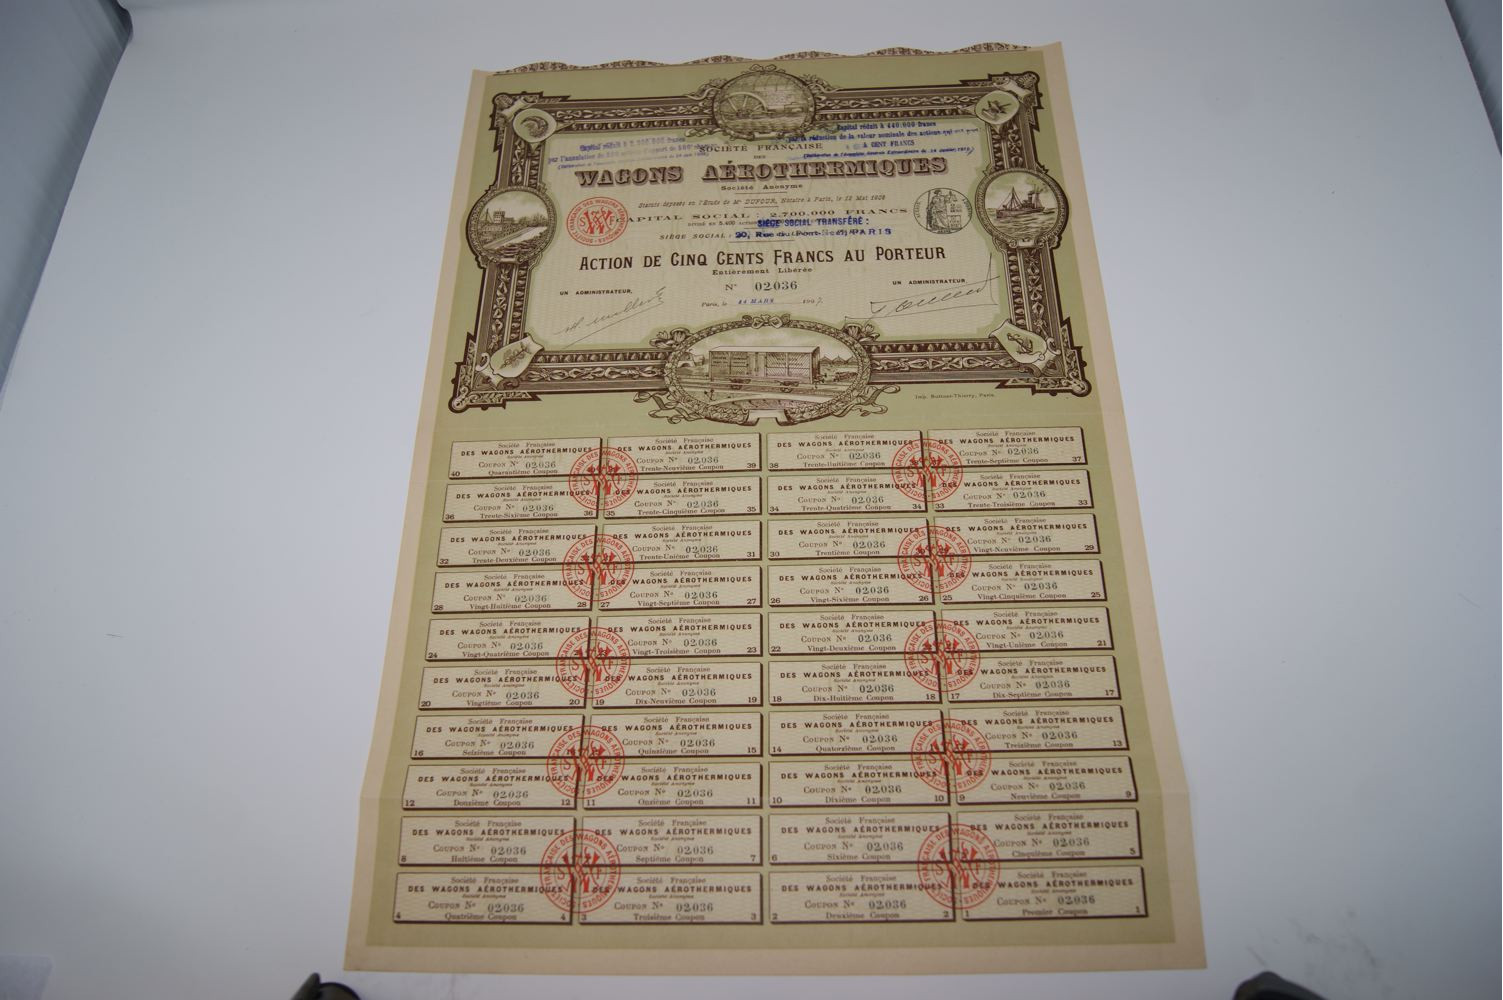 Capital réduit à 440.000 francs
par la réduction de la valeur nominale des actions
à CENT FRANCS
SOCIÉTÉ FRANÇAISE
DES
WAGONS AÉROTHERMIQUES
Société Anonyme
Statuts déposés en l'Étude de Me DUFOUR, Notaire à Paris, le
CAPITAL SOCIAL : 2.700.000 FRANCS
SIÈGE SOCIAL TRANSFÉRÉ :
SIÈGE SOCIAL :
20, Rue du Pont-Neuf, PARIS
ACTION DE CINQ CENTS FRANCS AU PORTEUR
Entièrement Libérée
No 02036
UN ADMINISTRATEUR, UN ADMINISTRATEUR,
Paris, le 14 MARS 1907.
Imp. Buttner-Thierry, Paris.
Société Française Société Française Société Française Société Française
DES WAGONS AÉROTHERMIQUES DES WAGONS AÉROTHERMIQUES DES WAGONS AÉROTHERMIQUES DES WAGONS AÉROTHERMIQUES
Société Anonyme Société Anonyme Société Anonyme Société Anonyme
COUPON No 02036 COUPON No 02036 COUPON No 02036 COUPON No 02036
40 Quarantième Coupon Trente-Neuvième Coupon 39 38 Trente-Huitième Coupon Trente-Septième Coupon 37
Société Française Société Française Société Française Société Française
DES WAGONS AÉROTHERMIQUES DES WAGONS AÉROTHERMIQUES DES WAGONS AÉROTHERMIQUES DES WAGONS AÉROTHERMIQUES
Société Anonyme Société Anonyme Société Anonyme Société Anonyme
COUPON No 02036 COUPON No 02036 COUPON No 02036 COUPON No 02036
36 Trente-Sixième Coupon 36 35 Trente-Cinquième Coupon 35 34 Trente-Quatrième Coupon 34 33 Trente-Troisième Coupon 33
Société Française Société Française Société Française Société Française
DES WAGONS AÉROTHERMIQUES DES WAGONS AÉROTHERMIQUES DES WAGONS AÉROTHERMIQUES DES WAGONS AÉROTHERMIQUES
Société Anonyme Société Anonyme Société Anonyme Société Anonyme
COUPON No 02036 COUPON No 02036 COUPON No 02036 COUPON No 02036
32 Trente-Deuxième Coupon Trente-Unième Coupon 31 30 Trentième Coupon Vingt-Neuvième Coupon 29
Société Française Société Française Société Française Société Française
DES WAGONS AÉROTHERMIQUES DES WAGONS AÉROTHERMIQUES DES WAGONS AÉROTHERMIQUES DES WAGONS AÉROTHERMIQUES
Société Anonyme Société Anonyme Société Anonyme Société Anonyme
COUPON No 02036 COUPON No 02036 COUPON No 02036 COUPON No 02036
28 Vingt-Huitième Coupon 28 27 Vingt-Septième Coupon 27 26 Vingt-Sixième Coupon 26 25 Vingt-Cinquième Coupon 25
Société Française Société Française Société Française Société Française
DES WAGONS AÉROTHERMIQUES DES WAGONS AÉROTHERMIQUES DES WAGONS AÉROTHERMIQUES DES WAGONS AÉROTHERMIQUES
Société Anonyme Société Anonyme Société Anonyme Société Anonyme
COUPON No 02036 COUPON No 02036 COUPON No 02036 COUPON No 02036
24 Vingt-Quatrième Coupon Vingt-Troisième Coupon 23 22 Vingt-Deuxième Coupon Vingt-Unième Coupon 21
Société Française Société Française Société Française Société Française
DES WAGONS AÉROTHERMIQUES DES WAGONS AÉROTHERMIQUES DES WAGONS AÉROTHERMIQUES DES WAGONS AÉROTHERMIQUES
Société Anonyme Société Anonyme Société Anonyme Société Anonyme
COUPON No 02036 COUPON No 02036 COUPON No 02036 COUPON No 02036
20 Vingtième Coupon 20 19 Dix-Neuvième Coupon 19 18 Dix-Huitième Coupon 18 17 Dix-Septième Coupon 17
Société Française Société Française Société Française Société Française
DES WAGONS AÉROTHERMIQUES DES WAGONS AÉROTHERMIQUES DES WAGONS AÉROTHERMIQUES DES WAGONS AÉROTHERMIQUES
Société Anonyme Société Anonyme Société Anonyme Société Anonyme
COUPON No 02036 COUPON No 02036 COUPON No 02036 COUPON No 02036
16 Seizième Coupon Quinzième Coupon 15 14 Quatorzième Coupon Treizième Coupon 13
Société Française Société Française Société Française Société Française
DES WAGONS AÉROTHERMIQUES DES WAGONS AÉROTHERMIQUES DES WAGONS AÉROTHERMIQUES DES WAGONS AÉROTHERMIQUES
Société Anonyme Société Anonyme Société Anonyme Société Anonyme
COUPON No 02036 COUPON No 02036 COUPON No 02036 COUPON No 02036
12 Douzième Coupon 12 11 Onzième Coupon 11 10 Dixième Coupon 10 9 Neuvième Coupon 9
Société Française Société Française Société Française Société Française
DES WAGONS AÉROTHERMIQUES DES WAGONS AÉROTHERMIQUES DES WAGONS AÉROTHERMIQUES DES WAGONS AÉROTHERMIQUES
Société Anonyme Société Anonyme Société Anonyme Société Anonyme
COUPON No 02036 COUPON No 02036 COUPON No 02036 COUPON No 02036
8 Huitième Coupon Septième Coupon 7 6 Sixième Coupon Cinquième Coupon 5
Société Française Société Française Société Française Société Française
DES WAGONS AÉROTHERMIQUES DES WAGONS AÉROTHERMIQUES DES WAGONS AÉROTHERMIQUES DES WAGONS AÉROTHERMIQUES
Société Anonyme Société Anonyme Société Anonyme Société Anonyme
COUPON No 02036 COUPON No 02036 COUPON No 02036 COUPON No 02036
4 Quatrième Coupon 4 3 Troisième Coupon 3 2 Deuxième Coupon 2 1 Premier Coupon 1